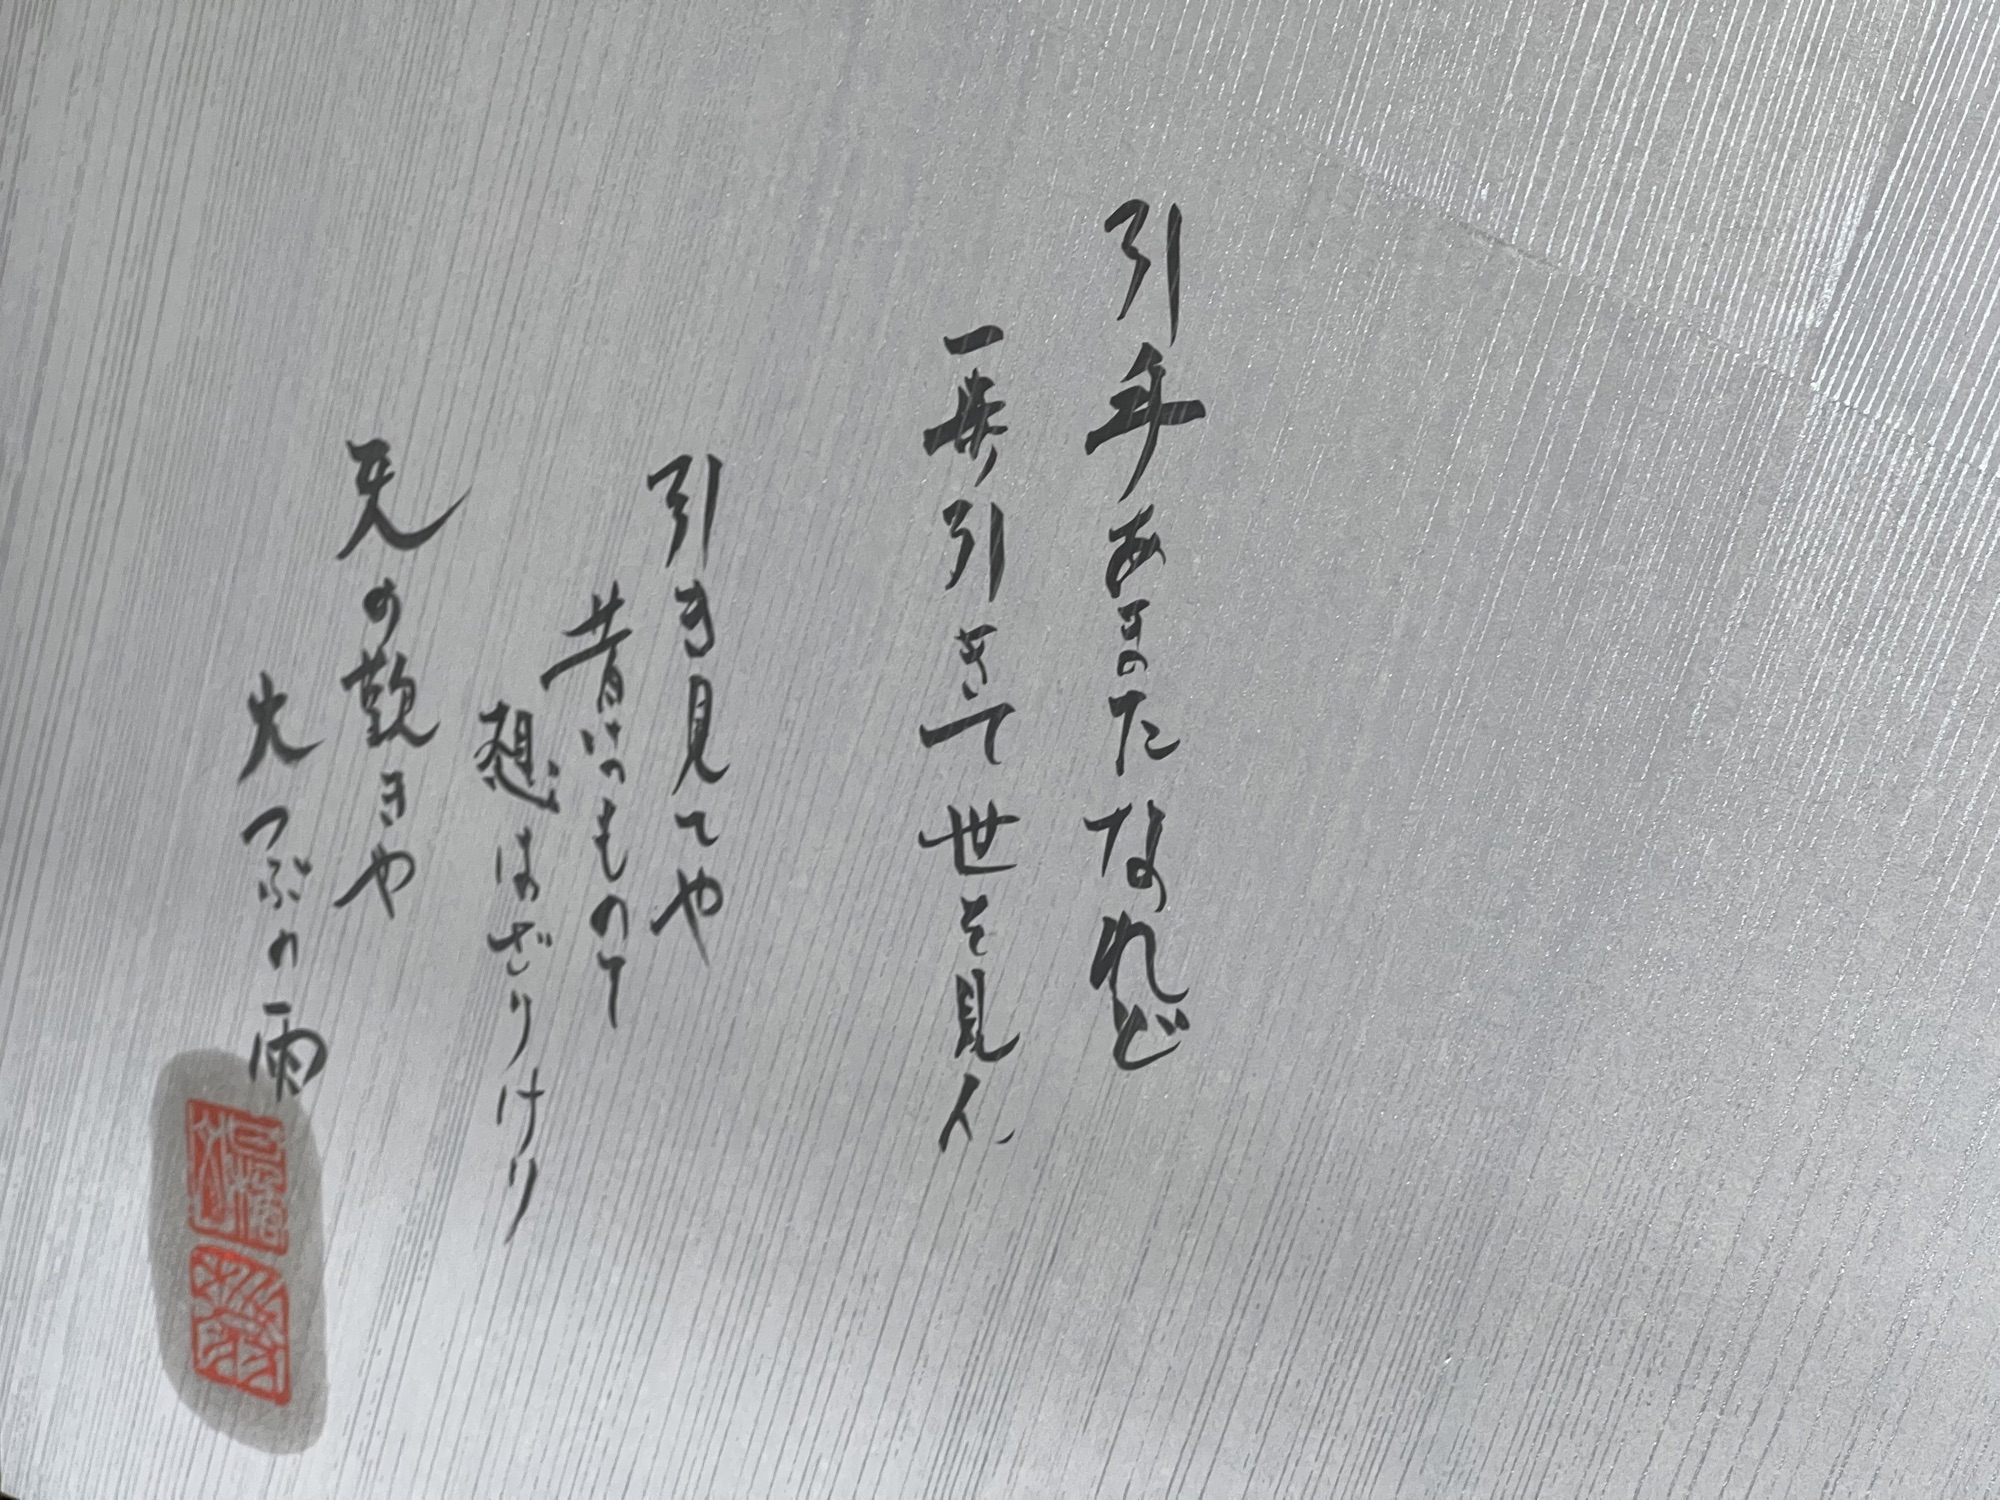 引手あまたなれど
一番引きて世を見ん
引き見てや
昔いつものて
想はざりけり
天の歎きや
大つぶの雨